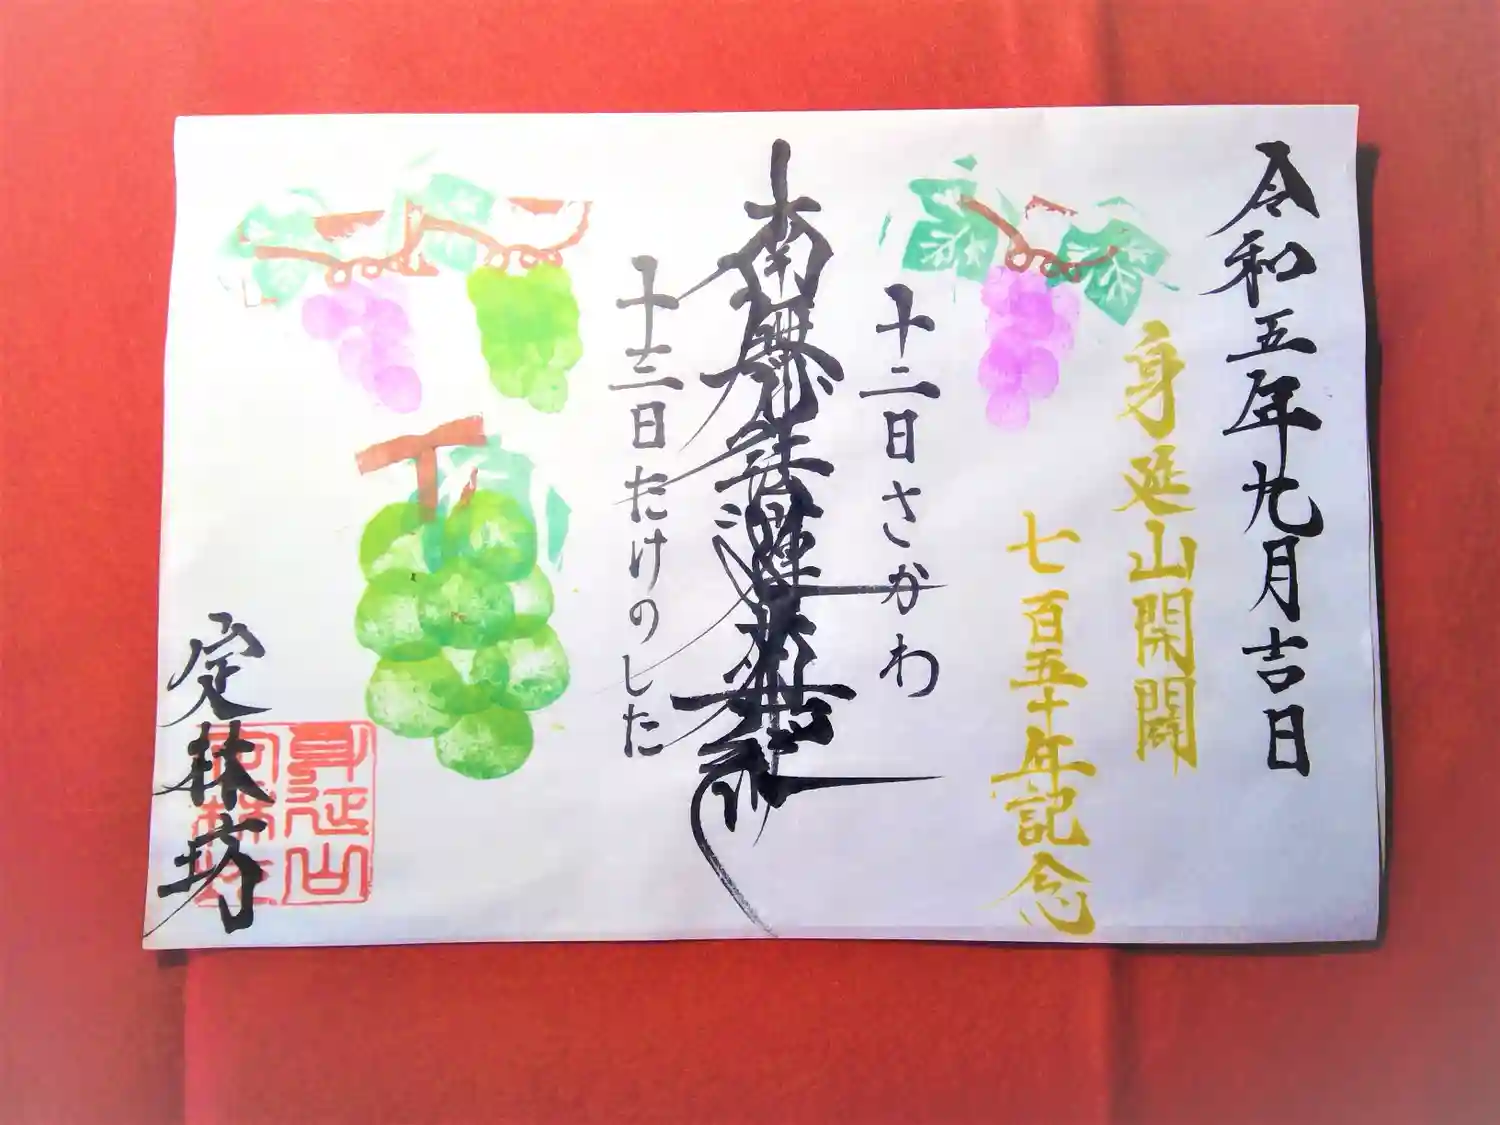 令和五年九月吉日
身延山開闢
七百五十年記念
十二日さかわ
南無妙法蓮華経
十三日たけのした
定林坊
身延山